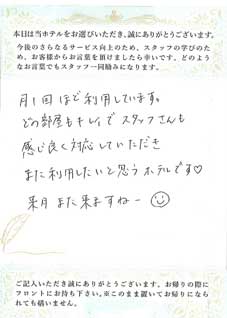 本日は当ホテルをお選びいただき、誠にありがとうございます。
今後のさらなるサービス向上のため、スタッフの学びのため、お客様からお言葉を頂けましたら幸いです。どのようなお言葉でもスタッフ一同励みになります。
月1回ほど利用しています。
どの部屋もキレイでスタッフさんも
感じ良く対応していただき
また利用したいと思うホテルです♡
来月また来ますねー
ご記入いただき誠にありがとうございます。お帰りの際に
フロントにお持ち下さい。※このまま置いてお帰りになら
れても構いません。